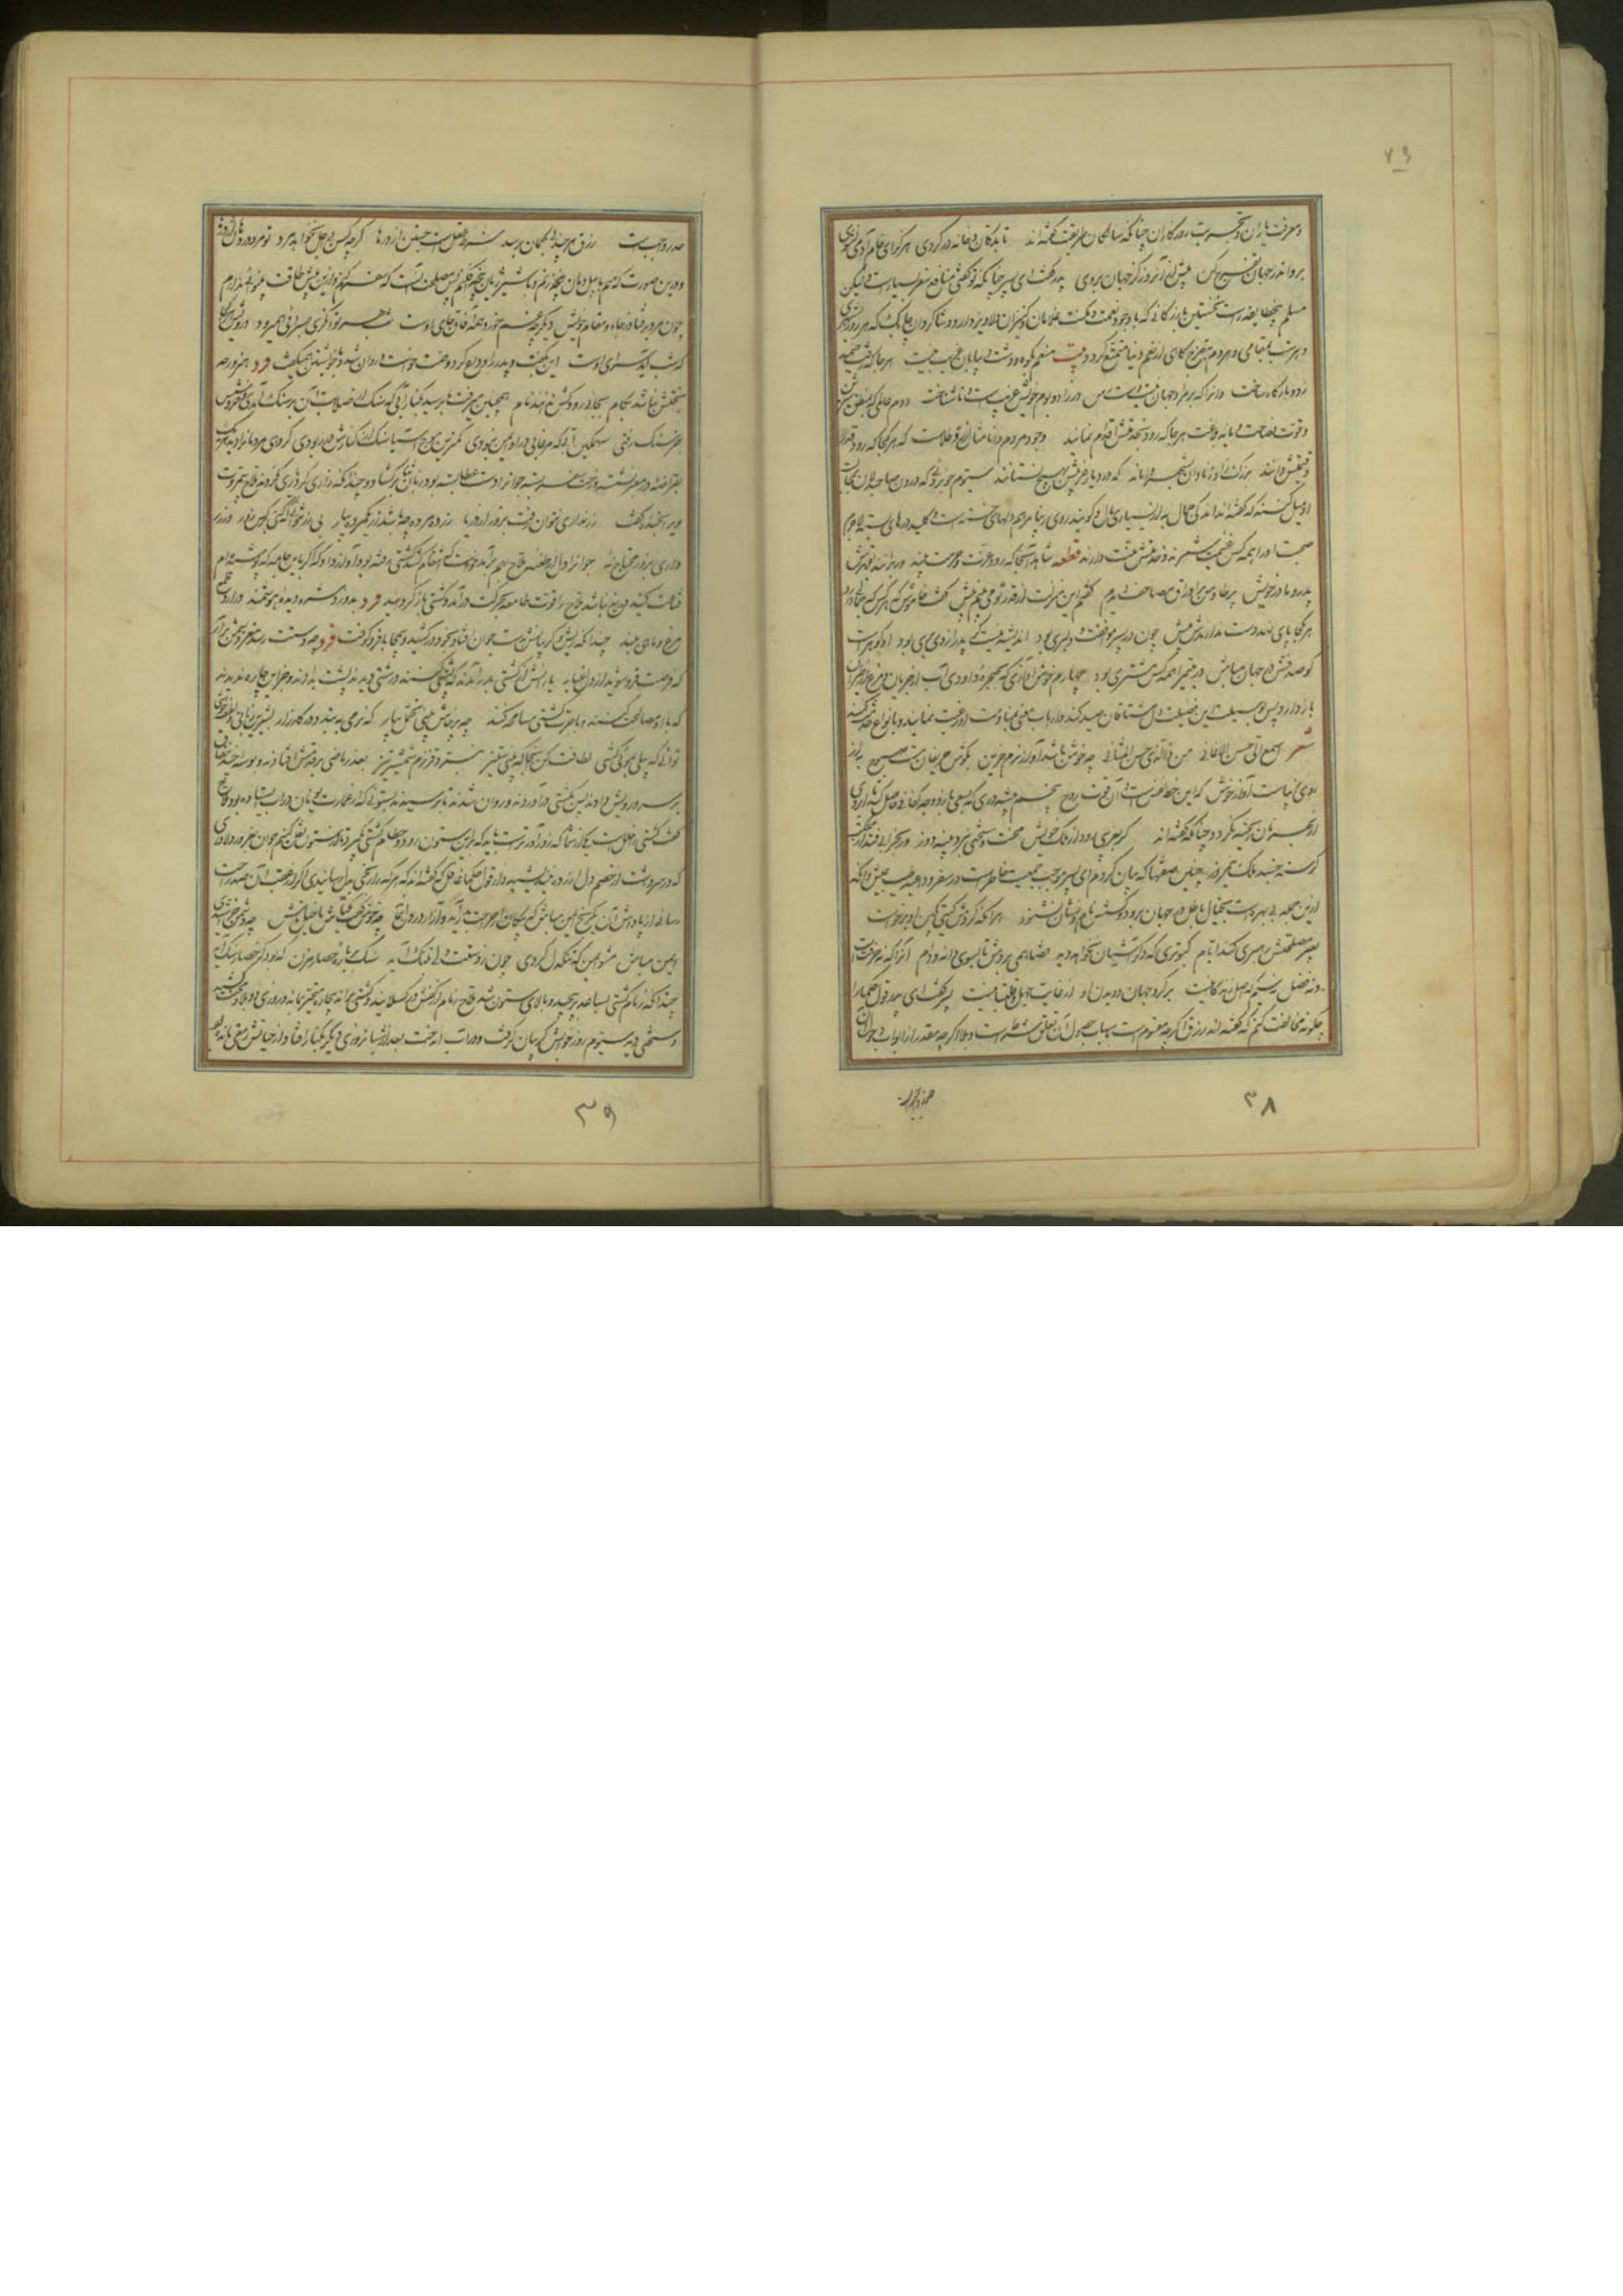 ۷۳
و معرفت یاران و تجربت روزگاران چنانکه سالکان طریقت گفته اند تا بدکان و خانه در گروی هرگز ای خام آدمی نشوی
برو اندر جهان تفرج کن پیش از آن روز کز جهان بروی پدر گفت ای پسر چنانکه تو گفتی منافع سفر بسیارست ولیکن
مسلم پنج طایفه راست نخستین بازرگانی که با وجود نعمت و مکنت غلامان و کنیزان دلاویز دارد و شاگردان چابک که هر روز بشهری
و هر شب بمقامی و هر دم بتفرج گاهی از نعیم دنیا متمتع گردد بیت منعم بکوه و دشت و بیابان غریب نیست هر جا که رفت خیمه
زد و بارگاه ساخت و آنرا که بر مراد جهان نیست دست رس در زاد و بوم خویش غریب است و ناشناخت دوم عالمی که بمنطق شیرین
و قوت فصاحت و مایه بلاغت هر جا که رود بخدمتش اقدام نمایند وجود مردم دانا مثال زر طلاست که هر کجا که رود قدر
و قیمتش دانند بزرگ زاده نادان بشهر وا ماند که در دیار غریبش بهیچ نستانند سیوم خوبروئی که درون صاحبدلان بمخالطت
او میل کند که گفته اند اندکی جمال به از بسیاری مال و گویند روی زیبا مرهم دلهای خسته است و کلید درهای بسته لاجرم
صحبت او را همه کس غنیمت شمرند و خدمتش منت دارند قطعه شاهد آنجا که رود عزت و حرمت بیند ور برانند بقهرش
پدر و مادر خویش پر طاوس در اوراق مصاحف دیدم گفتم این منزلت از قدر تو می بینم بیش گفت خاموش که هر کس که جمالی دارد
هر کجا پای نهد دست ندارندش پیش چون در پسر موافقت و دلبری بود اندیشه نیست گر پدر از وی بری بود او گوهرست
گو صدفش در جهان مباش در یتیم را همه کس مشتری بود چهارم خوش آوازی که بحنجره داودی آب از جریان و مرغ از طیران
باز دارد پس بوسیلت این فضیلت دل مشتاقان صید کند و ارباب معنی بمنادمت او رغبت نمایند و بانواع خدمت کنند
شعر سمعی الی حسن الاغانی من ذا الذی جس المثانی چه خوش باشد آواز نرم حزین بگوش حریفان مست صبوح به از
روی زیباست آواز خوش که این حظ نفس است و آن قوت روح پنجم پیشه وری که بسعی بازو وجه کفافی حاصل کند تا آبروی
از بهر نان ریخته نگردد چنانکه گفته اند گر بغریبی رود از ملک خویش محنت و سختی نبرد پینه دوز ور بخرابی فتد از مملکت
گرسنه خسبد ملک نیمروز چنین صفتها که بیان کردم ای پسر موجب جمعیت خاطرست در سفر و داعیه طیب عیش و آنکه
ازین جمله بی بهره است بخیال باطل در جهان برود و کسش نام و نشان نشنود هر آنکه گردش گیتی بکین او برخاست
بغیر مصلحتش رهبری کند ایام کبوتری که دگر آشیان نخواهد دید قضا همی بردش تا بسوی دانه و دام
پسر گفت ای پدر قول حکما را
چگونه مخالفت کنم که گفته اند رزق اگر چه مقسوم است باسباب حصول آن تعلق شرط است و بلا اگر چه مقدر از ابواب دخول آن
۳۸
حذر واجب
حذر واجبست رزق هر چند بیگمان برسد شرط عقل است جستن از درها گر چه کس بی اجل نخواهد مرد تو مرو در دهان اژدرها
و درین صورت که منم با پیل دمان پنجه زنم و با شیر ژیان پنجه در افکنم پس مصلحت آنست که سفر کنم و ازین بیش طاقت بینوائی ندارم
چون مرد بر فتاد ز جای و مقام خویش دیگر چه غم خورد همه آفاق جای اوست شب هر توانگری بسرائی همیرود درویش هر کجا
که شب آید سرای اوست این بگفت و پدر را وداع کرد و همت خواست و روان شد و با خویشتن همیگفت فرد هنرور چو
بختش نباشد بکام بجائی رود کش ندانند نام همچنین میرفت تا برسید بکنار آبی که سنک از صلابت آن بر سنک آمدی و خروش
بفرسنک رفتی سهمگین آبی که مرغابی در او ایمن نبودی کمترین موج آسیا سنک از کنارش در ربودی گروهی مردمانرا دید هر یک
بقراضه در معبر نشسته و رخت سفر بسته جوانرا دست عطا بسته بود زبان ثنا برگشاد و چندانکه زاری کرد یاری نکردند ملاح بیمروت
ازو بخنده گفت زر نداری نتوان رفت بزور از دریا زور ده مرده چه باشد زر یکمرده بیار بی زر نتوانی که کنی بر کس زور ور زر
داری بزور محتاج نه جوانرا دل از طعنه ملاح بهم برآمد خواست که انتقام کشد کشتی رفته بود آواز داد که اگر باین جامه که پوشیده ام
قناعت کنید دریغ نباشد ملاح را قوت طامعه بحرکت درآمد و کشتی باز گردانید فرد بدوزد شره دیده هوشمند درآرد طمع
مرغ و ماهی ببند چندانکه ریش و گریبانش بدست جوان افتاد بخود در کشید و بیمحابا فرو کوفت
یارانش از کشتی بدر آمدند که پشتی کنند درشتی دیدند پشت بدادند و جز این چاره ندیدند
که با او مصالحت کنند و باجرت کشتی مسامحه کنند چو پرخاش بینی تحمل بیار که نرمی ببندد در کارزار بشیرین زبانی و لطف و خوشی
توانی که پیلی بموئی کشی لطافت کن آنجا که بینی ستیز نبرد قز نرم شمشیر تیز بعذر ماضی بر قدمش افتادند و بوسه چند بنفاق
بر سر و رویش دادند پس بکشتی درآوردند و روان شدند تا برسیدند بستونی که از عمارت یونان در آب ایستاده بود ملاح
گفت کشتی را خلل است یکی از شما که زورآورتر است باید که برین ستون رود و خطام کشتی بگیرد تا از ستون نقل کنیم جوان بغرور دلاوری
که در سر داشت از خصم دل آزرده نیندیشید و از قول حکما غافل که گفته اند که هر که را رنجی بدل رسانیدی اگر در عقب آن صد راحت
رسانی از پاداش آن یک رنج ایمن مباش که پیکان از جراحت بدر آید و آزار در دل بماند چه خوش گفت یکتاش با خیلتاش چو دشمن خراشیدی
ایمن مباش مشو ایمن که تنگدل گردی چون ز دستت دلی بتنگ آید سنگ بر باره حصار مزن که بود کز حصار سنگ آید
چندانکه زمام کشتی بساعد بر پیچید و بالای ستون شد ملاح زمام از کفش در گسلانید و کشتی براند بیچاره متحیر بماند و روزی دو بلا و محنت کشید
و سختی دید سیوم روز خوابش گریبان گرفت و در آب انداخت بعد از شبانروزی دیگر بکنار افتاد و از حیاتش رمقی مانده بود
۳۹